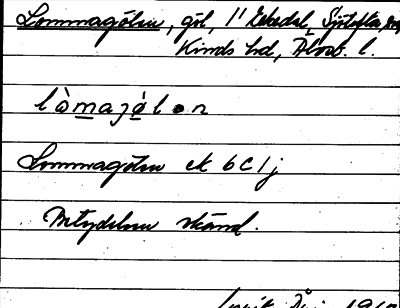 Lommagölen, göl, 1' Ekedal, Sjötofta
Kinds hd, Älvsb. l.
lòmajə̀lən
Lommagölen ek 6 C 1 j
Betydelsen okänd.